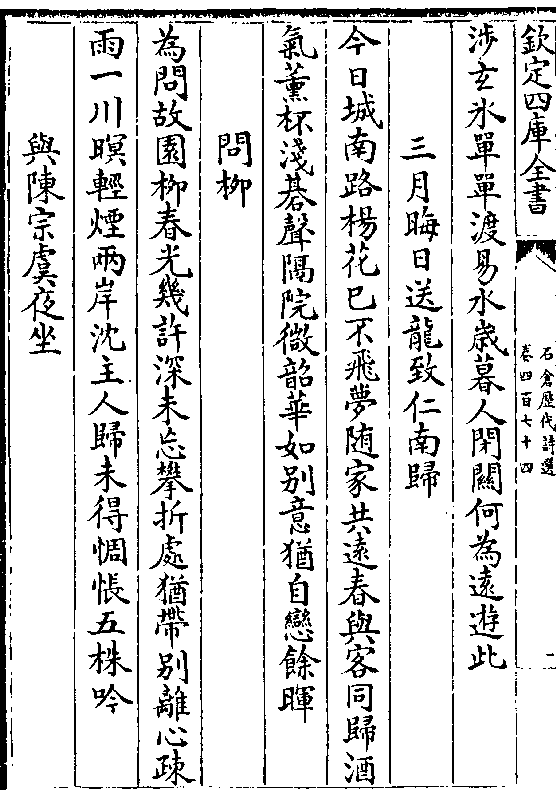 欽定四庫全書
石倉歷代詩選
卷四百七十四
一
涉玄氷單單渡易水歳暮人閉關何為遠遊此
三月晦日送龍致仁南歸
今日城南路楊花已不飛夢随家共遠春與客同歸酒
氣薫杯淺碁聲隔院微韶華如别意猶自戀餘暉
問柳
為問故園柳春光幾許深未忘攀折處猶帶别離心疎
雨一川暝輕煙兩岸沈主人歸未得惆悵五株吟
與陳宗虞夜坐